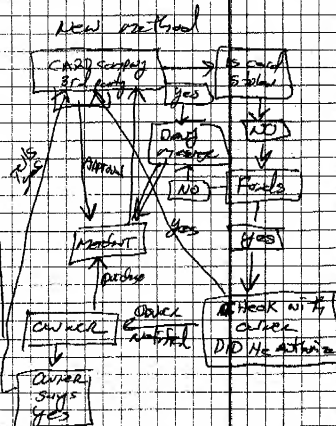 New method
CARD Company
3rd party
Is card
Stolen
yes
NO
Deny
message
NO
Funds
Yes
yes
Merchant
purchase
owner
owner
Notified
check with
owner
DID He Authorize
owner
says
yes